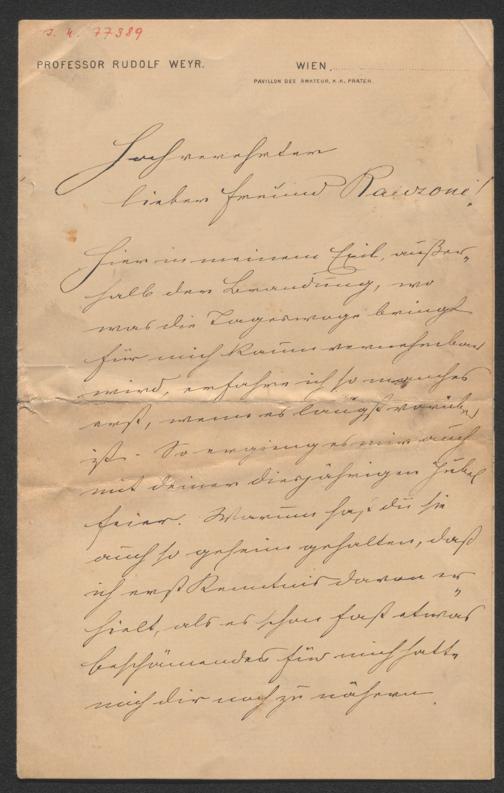 J. N. 77389
PROFESSOR RUDOLF WEYR.
WIEN
PAVILLON DES AMATEUR, K. K. PRATER.
Hochverehrter
lieber Freund Ranzoni!
Hier in meinem Exil, außer-
halb der Brandung, wo
was die Tageswoge bringt
für mich kaum vernehmbar
wird, erfahre ich so manches
erst, wenn es längst vorüber
ist. So erging es mir auch
mit deiner diesjährigen Jubel
feier. Warum hast du sie
auch so geheim gehalten, daß
ich erst Kenntnis davon er-
hielt, als es schon fast etwas
beschämendes für mich hatte
mich dir noch zu nähern.